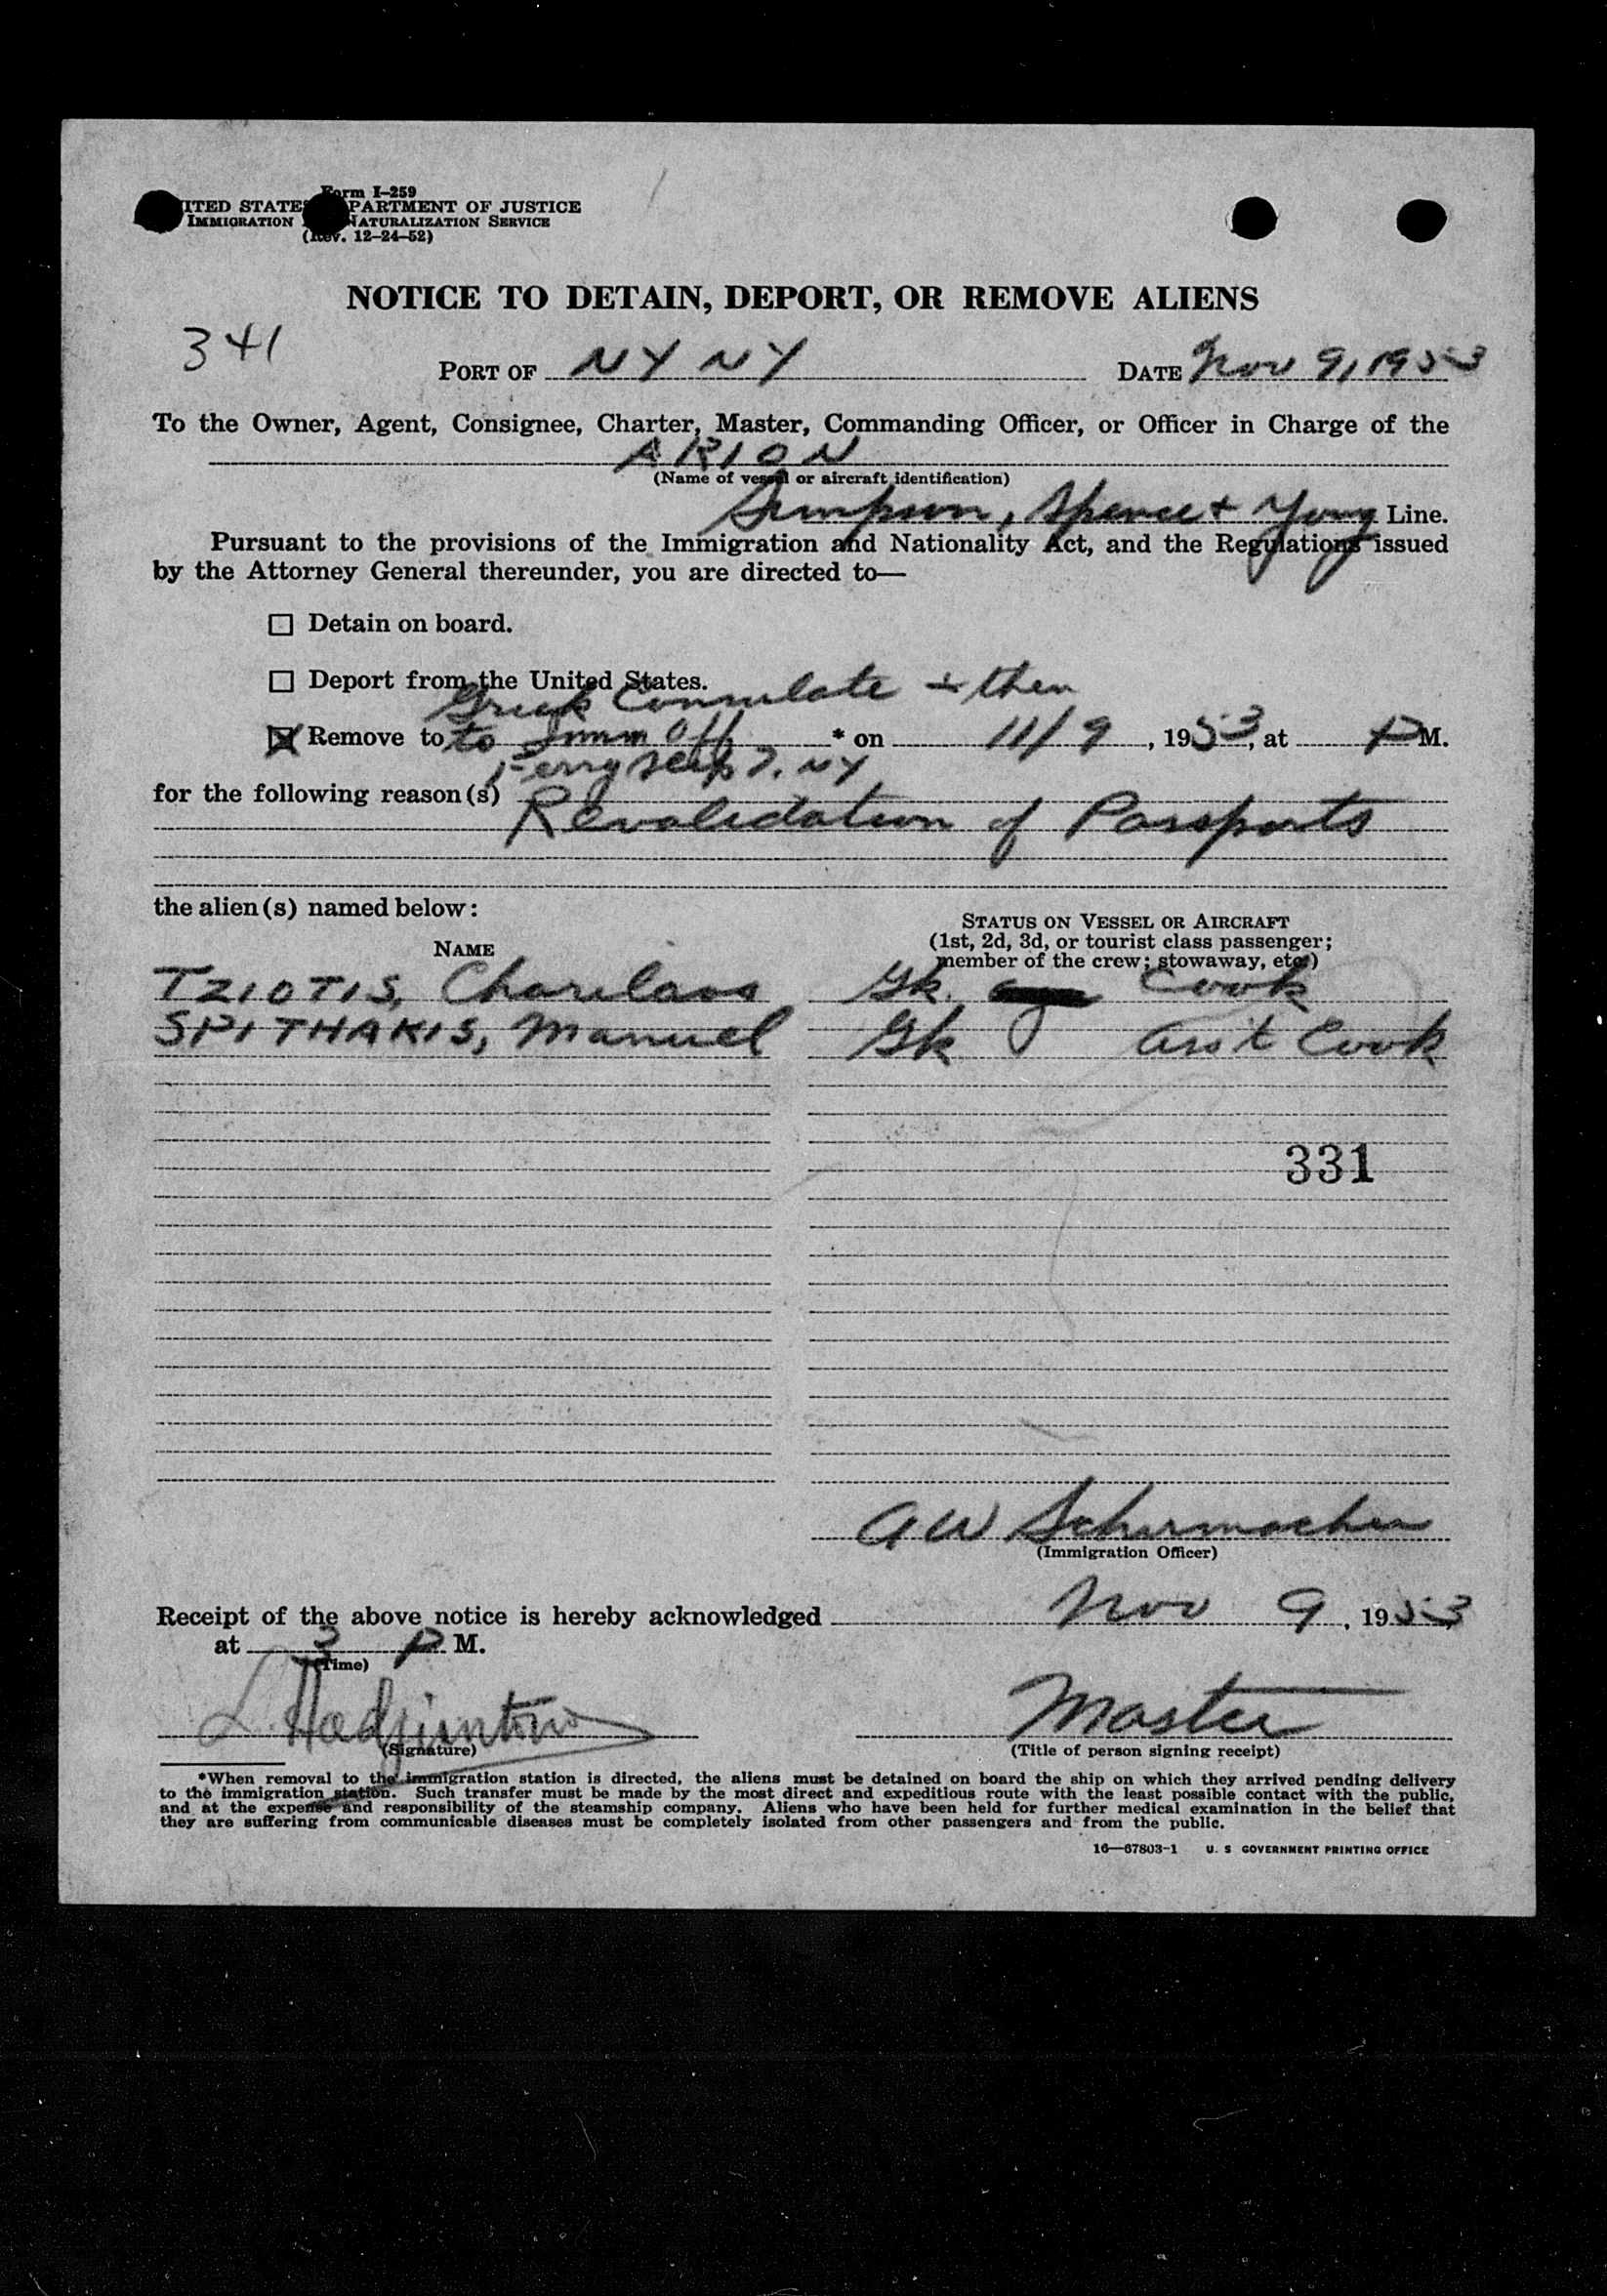 Form I-259
UNITED STATES DEPARTMENT OF JUSTICE
IMMIGRATION NATURALIZATION SERVICE
(Rev. 12-24-52)
NOTICE TO DETAIN, DEPORT, OR REMOVE ALIENS
341
PORT OF NY NY DATE Nov 9, 1953
To the Owner, Agent, Consignee, Charter, Master, Commanding Officer, or Officer in Charge of the
ARION
(Name of vessel or aircraft identification)
Simpson, Spence + Young Line.
Pursuant to the provisions of the Immigration and Nationality Act, and the Regulations issued
by the Attorney General thereunder, you are directed to—
☐ Detain on board.
☐ Deport from the United States.
Greek Consulate + then
☒ Remove to to Imm Off * on 11/9, 1953, at P M.
Ferry NY
for the following reason(s)
Revalidation of Passports
the alien(s) named below:
STATUS ON VESSEL OR AIRCRAFT
(1st, 2d, 3d, or tourist class passenger;
NAME
member of the crew; stowaway, etc.)
TZIOTIS, Charilaos Gk. Cook
SPITHAKIS, Manuel Gk Ass't Cook
331
AW Schurmacher
(Immigration Officer)
Receipt of the above notice is hereby acknowledged Nov 9, 1953
at 3 P M.
(Time)
Master
(Signature) (Title of person signing receipt)
*When removal to the immigration station is directed, the aliens must be detained on board the ship on which they arrived pending delivery
to the immigration station. Such transfer must be made by the most direct and expeditious route with the least possible contact with the public,
and at the expense and responsibility of the steamship company. Aliens who have been held for further medical examination in the belief that
they are suffering from communicable diseases must be completely isolated from other passengers and from the public.
16—67803-1 U. S GOVERNMENT PRINTING OFFICE